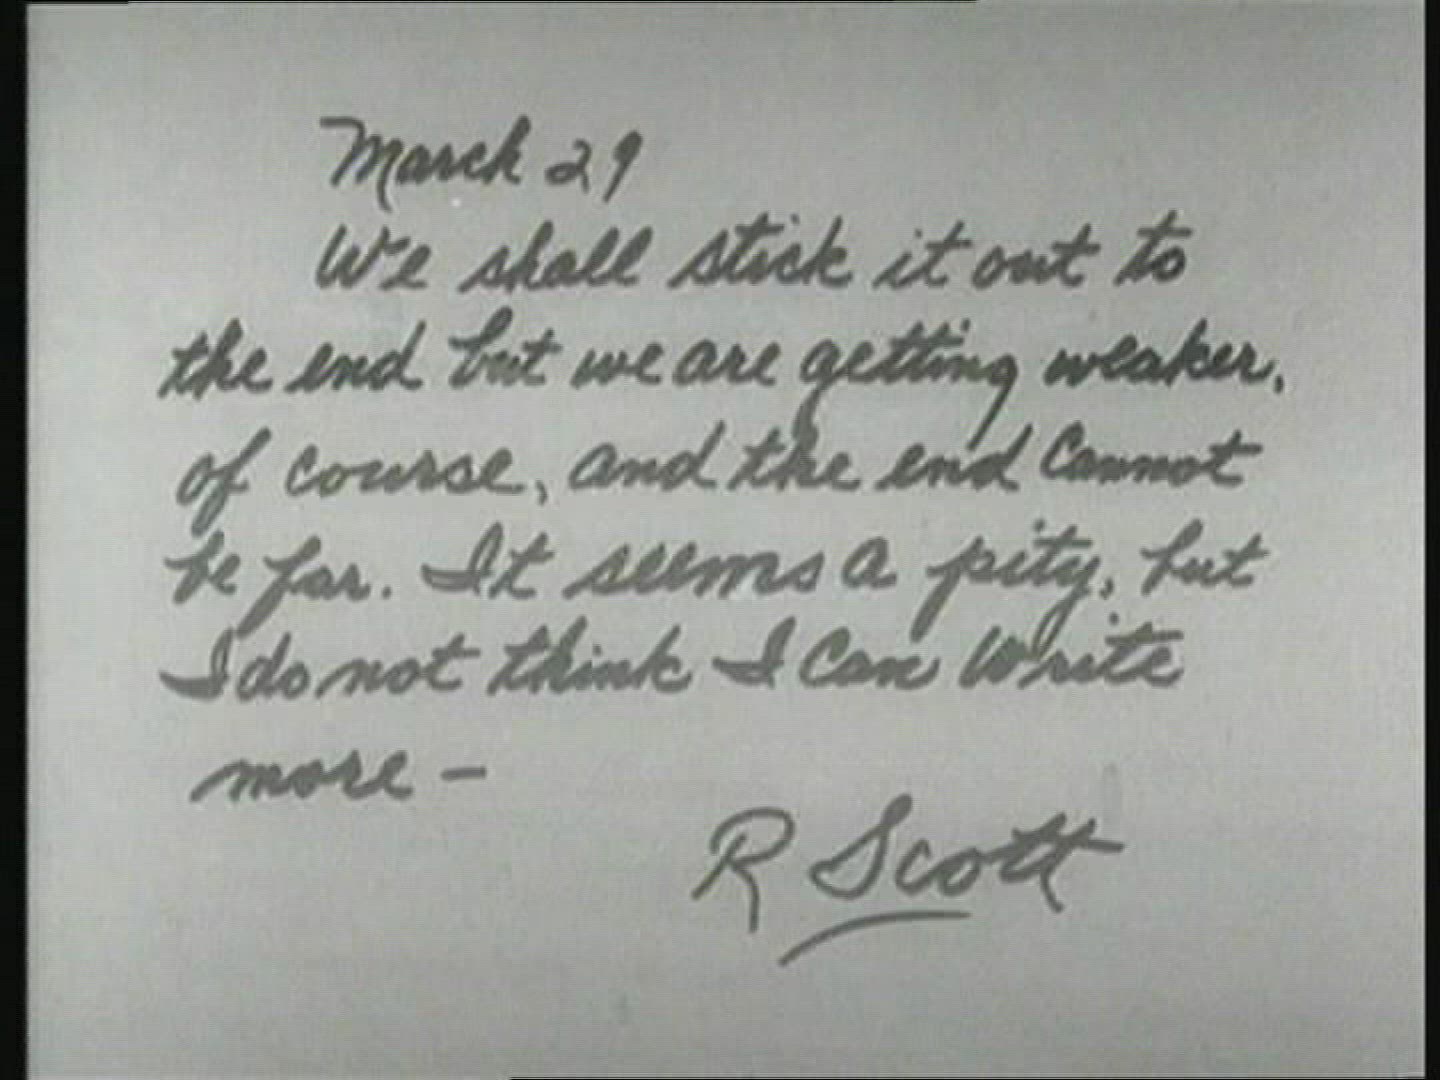 March 29
We shall stick it out to
the end but we are getting weaker,
of course, and the end cannot
be far. It seems a pity, but
I do not think I can write
more –
R Scott